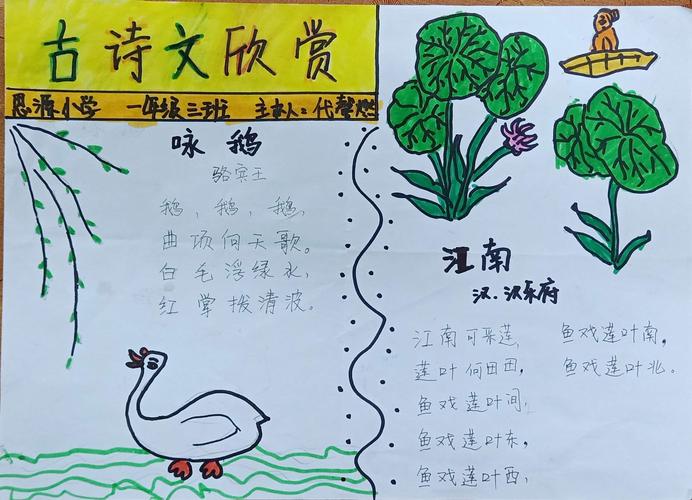 古诗文欣赏
思源小学 一年级三班 主办人：代馨燃
咏鹅
骆宾王
鹅，鹅，鹅，
曲项向天歌。
白毛浮绿水，
红掌拨清波。
江南
汉·汉乐府
江南可采莲，
莲叶何田田，
鱼戏莲叶间，
鱼戏莲叶东，
鱼戏莲叶西，
鱼戏莲叶南，
鱼戏莲叶北。